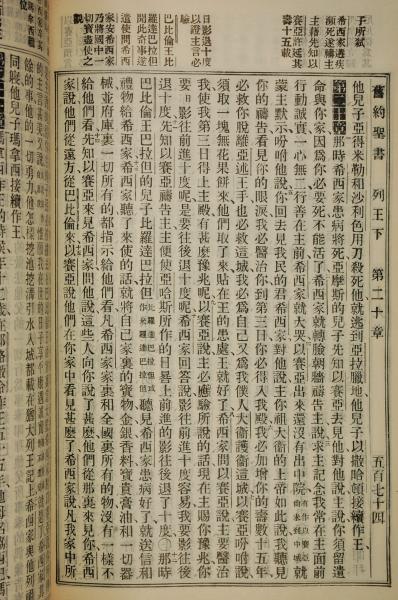 子所弒
希西家遘疾
瀕死遂禱主
主藉先知以
賽亞許延其
壽十五載
日影退十度
以證主言必
驗
巴比倫王比
羅達巴拉但
聞此奇事遂
遣使問希西
家安希西家
切寶盡使之
觀
舊約聖書 列王下 第二十章 五百七十四
他兒子亞得米勒和沙利色用刀殺死他就逃到亞拉臘地他兒子以撒哈頓接續作王
第二十章 那時希西家患病將死亞摩斯的兒子先知以賽亞去見他對他說主如此說你須留遺
命與你家因爲你必要死不能活了希西家就轉臉朝牆禱告主說求主記念我常在主面前
行動誠實一心無二行善在主前希西家就大哭以賽亞出來還沒有出中院有作以賽亞尚未到中城就
蒙主默示吩咐他說你回去見我民的君希西家對他說主你祖大衞的上帝如此說我聽見
你的禱告看見你的眼淚我必醫治你到第三日你必得入我殿我必加增你的壽數十五年
必救你脫離亞述王手也必救這城我必爲自己又爲我僕人大衞護衞這城以賽亞吩咐說
須取一塊無花果餅來他們取了來貼在王的患處王就好了希西家問以賽亞說主要醫治
我使我第三日得上主殿有甚麼豫兆呢以賽亞說主必應驗所說的話現在主賜你豫兆你
要日影往前進十度呢是要往後退十度呢希西家回答說影往前進十度容易我要影往後
退十度先知以賽亞禱告主主便使亞哈斯所作的日晷上前進的影往後退了十度〇那時
巴比倫王巴拉但的兒子比羅達巴拉但比羅達巴拉但或作米羅達巴拉但聽見希西家患病好了就送信和
禮物給希西家希西家聽了來使的話就將自己家裏的寶物金銀香料寶貴膏油和一切器
械並府庫裏一切所有的都指示給他們看凡希西家家裏和全國裏所有的物沒有一樣不
給他們看先知以賽亞來見希西家問他說這些人向你說了甚麼他們從那裏來見你希西
家說他們從遠方從巴比倫來以賽亞說他們在你家中看見甚麼了希西家說凡我家中所